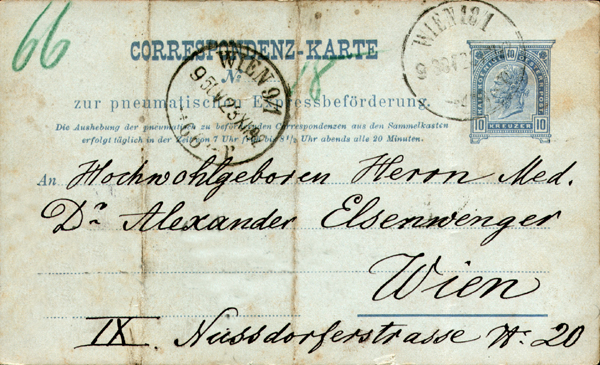 66
CORRESPONDENZ-KARTE
WIEN 101
WIEN 9/1
Nº
18
zur pneumatischen Expressbeförderung.
Die Aushebung der pneumatisch zu befördernden Correspondenzen aus den Sammelkasten
erfolgt täglich in der Zeit von 7 Uhr früh bis 8½ Uhr abends alle 20 Minuten.
10 10
KREUZER
An Hochwohlgeboren Herrn Med.
Dr. Alexander Elsenwenger
Wien
IX. Nussdorferstrasse Nr. 20